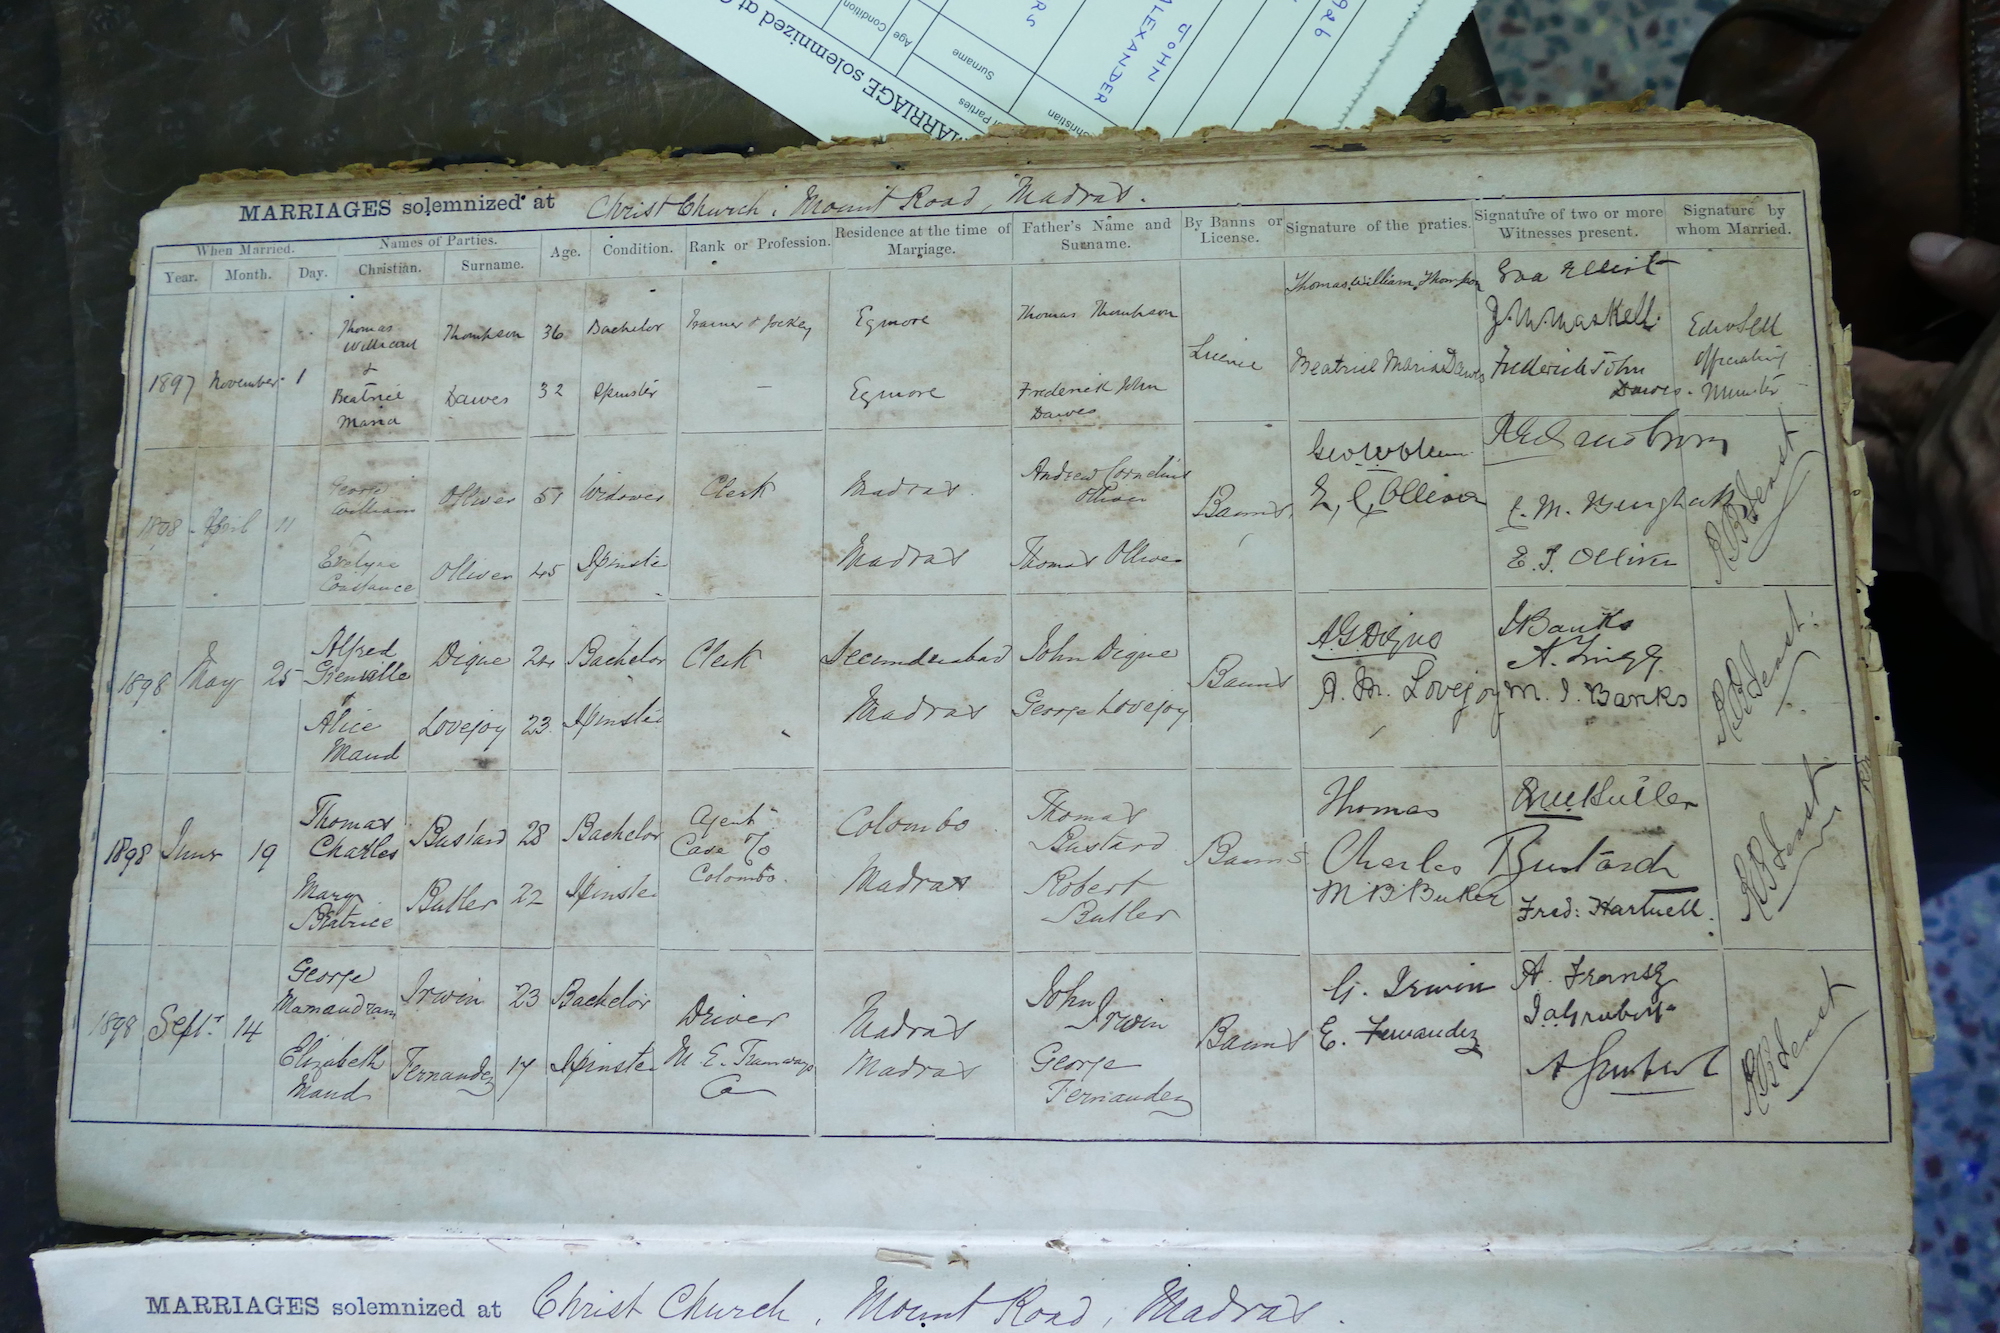 MARRIAGE solemnized at
Parties
Christian
Surname
Age
Condition
JOHN
ALEXANDER
RS
926
MARRIAGES solemnized at Christ Church, Mount Road, Madras.
When Married. Names of Parties. Age. Condition. Rank or Profession. Residence at the time of Marriage. Father's Name and Surname. By Banns or License. Signature of the praties. Signature of two or more Witnesses present. Signature by whom Married.
Year. Month. Day. Christian. Surname.
Thomas William Thompson Eva Elliot
Thomas William Thompson 36 Bachelor Trainer & Jockey Egmore Thomas Thompson J. M. Maskell
1897 November 1 & License Officiating Minister
Beatrice Maria Dawes 32 Spinster — Egmore Frederick John Dawes Beatrice Maria Dawes Frederick John Dawes
George William Olliver 51 Widower Clerk Madras Andrew Cornelius Olliver
1898 April 11 Banns E. C. Olliver
Evelyne Constance Olliver 45 Spinster Madras Thomas Olliver E. J. Olliver
Alfred Grenville Digue 24 Bachelor Clerk Secunderabad John Digue
1898 May 25 & Banns
Alice Maud Lovejoy 23 Spinster Madras George Lovejoy A. M. Lovejoy M. I. Banks
Thomas Charles Bustard 28 Bachelor Agent Case & Co Colombo. Colombo Thomas Bustard Thomas Charles Bustard
1898 June 19 Banns
Mary Beatrice Butler 22 Spinster Madras Robert Butler M B Butler Fred: Hartnell.
George Mamandram Irwin 23 Bachelor Driver M. E. Tramways Co Madras John Irwin G. Irwin
1898 Sept. 14 Banns
Elizabeth Maud Fernandez 17 Spinster Madras George Fernandez E. Fernandez
MARRIAGES solemnized at Christ Church, Mount Road, Madras.